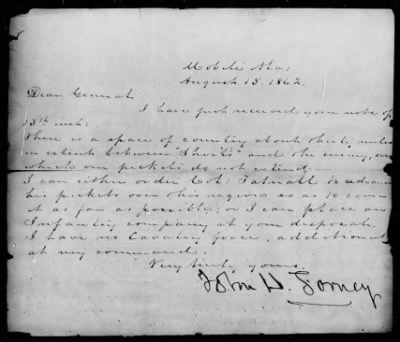 Mobile Ala:
August 15. 1862.
Dear General,
I have just received your note of
13th inst:
There is a space of country about thirty miles
in extent between and the enemy, over
which our pickets do not extend.
I can either order Col: Tatnall to advance
his pickets over this region so as to cover
it as far as possible; or I can place an
Infantry company at your disposal.
I have no Cavalry force, additional
at my command.
Very truly yours.
John H. Forney